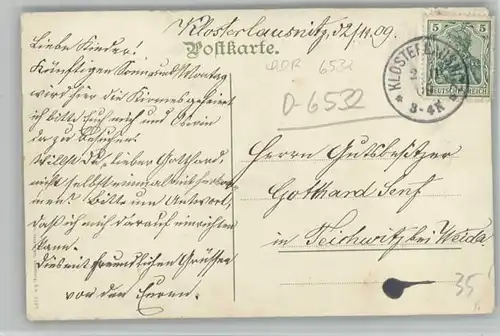 Klosterlausnitz, 22/11.09.
Postkarte.
DDR 6532
D-6532
5 5
DEUTSCHES REICH
KLOSTERLAUSNITZ
3-4N
Liebe Kinder!
Künftigen Sonn und Montag
wird hier die Kirmes gefeiert
ich bitte Euch mich und
zu besuchen.
Willst Du, lieber Gotthard,
nicht selbst einmal mit herkom
men? Bitte um Antwort,
daß ich mich darauf einrichten
kann.
Dies mit freundlichen Grüssen
von den Euern.
Herrn Gutsbesitzer
Gotthard Senf
in Teichwitz bei Weida
35